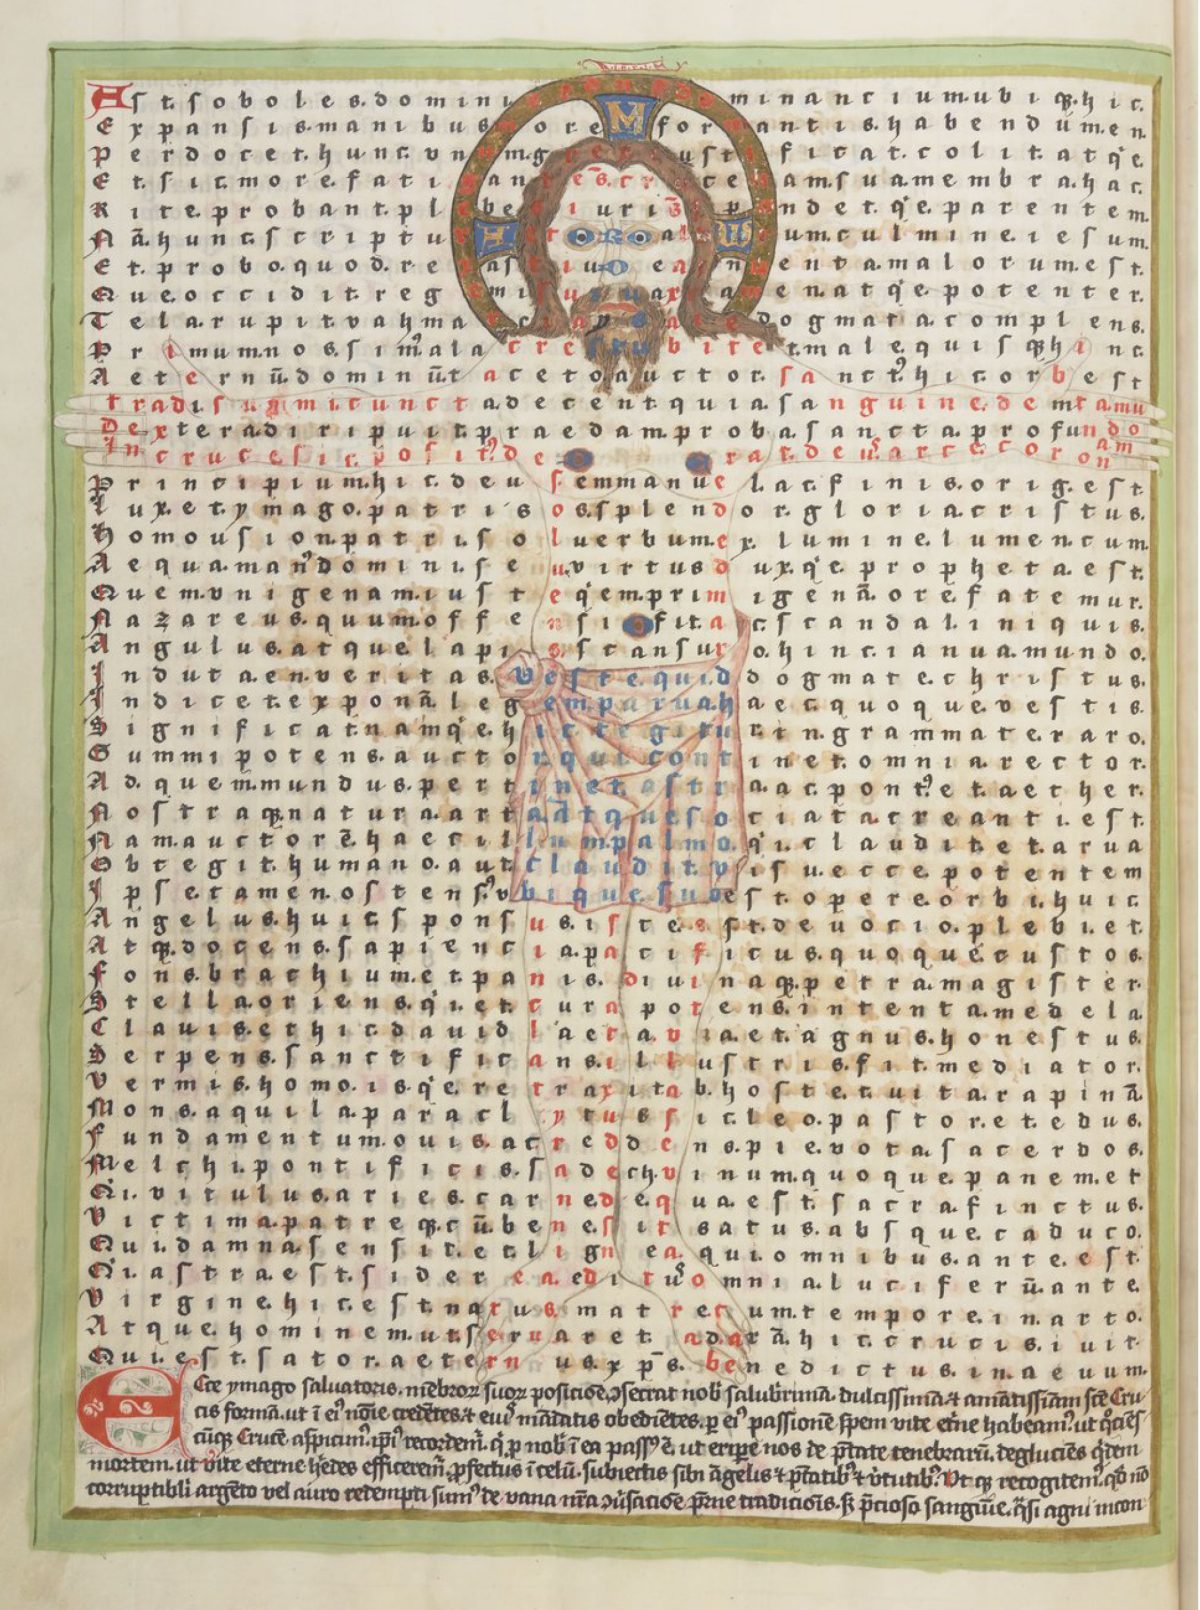 Ast soboles domini dominus dominancium ubiqꝫ hic
Expansis manibus more formantis habendum en
Perdocet hunc vnum grex ius iustificat colit atqꝫ
Et sic more fatigantes cruce iam sua membra hac
Rite probant plebes iuris pandet qꝫ parentem
Nā hunc scriptu um culmine iesum
Et probo quod re amenta malorum est
Que occidit reg men atqꝫ potenter
Tela rupit vah ma dogmata complens
Primum nos simala cre stu bite t male quisqꝫ hinc
Aeternū dominū t aceto auctor sanctꝰ hic orb est
tradi summi cunct adecent quia sanguine dempta mu
Dextera diripuit praedam proba sancta profundo
In cruce sic positꝰ de rat deuꝰ arce coronam
Principium hic deus emmanuel ac finis orig est
Lux et ymago patris os splendor gloria cristus
Homousion patris sol uerbum ex lumine lumen cum
Aequa manꝰ domini seu virtus dux qꝫ propheta est
Quem vnigenam iuste qꝫ primigenā ore fatemur
Nazareus quum offensio fit ac scandal iniquis
Angulus atque lapis stans uro hinc ianua mundo
Induta en veritas veste quid dogmate christus
Indicet exponā leg em parua haec quoque vestis
Significat namqꝫ hic tegitur in grammate raro
Summipotens auctor qui continet omnia rector
Ad quem mundus pertinet astra ac pontꝰ et aether
Nostraqꝫ natura arta adtque sociata creanti est
Nam auctorē haec illum palmo qui claudit et arua
Obtegit humano aut claudit visu ecce potentem
Ipse tamen ostensꝰ ubique suo est opere orbi huic
Angelus huic sponsus iste est deuocio plebi et
Atqꝫ docens sapiencia pacificus quoque custos
Fons brachium et panis diuinaqꝫ petra magister
Stella oriens qi et cura potens intenta medela
Clauis et hic dauid lacta via et agnus honestus
Serpens sanctificans illustris fit mediator
Vermis homo is qꝫ retraxit ab hoste uitara pinā
Mons aquila paraclytus sic leo pastor et edus
Fundamentum ouis ac reddens pie vota sacerdos
Melchi pontificis sadech vinum quoque panem et
Qi vitulus aries carne de qua est sacra finctus
Victima patreqꝫ cū bene sit satus absque caduco
Qui damnasensit et lignea qui omnibus ante est
Qi astra est sidere a edituꝰ omnia luciferū ante
Virgine hic est natus matre cum tempore in arto
Atque hominem ut seruaret ad arā hic crucis iuit
Qui est sator aeternus x̄p̄s benedictus in aeuum
Ecce ymago saluatoris mēbroꝝ suoꝝ positiōe ɔsecrat nob̄ salubrimā dulcissimā ⁊ amātissimā scē Cru
cis formā ut ī eiꝰ nōie credētes ⁊ euꝰ mādatis obediētes p̱ eiꝰ passionē spem vite etne habeamꝰ ut qͦcies
cūqꝫ Crucē aspicimꝰ ipiꝰ recordemꝰ q̇ p̱ nob̄ ī ea passꝰ ē ut eripe nos de p̄tate tenebrarū degluciēs qͥdem
mortem ut vite eterne hedes efficeremꝰ p̱fectus ī celū subiectis sibi āgelis ⁊ p̄tatibꝰ ⁊ v̓tutibꝰ Vt qꝫ recogitemꝰ qͦd nō
corruptibli argēto vel auro redempti sumꝰ de vana nrā ɔu̓satiōe p̄rne tradiciōis sꝫ p̄cioso sanguīe q̄si agni incon